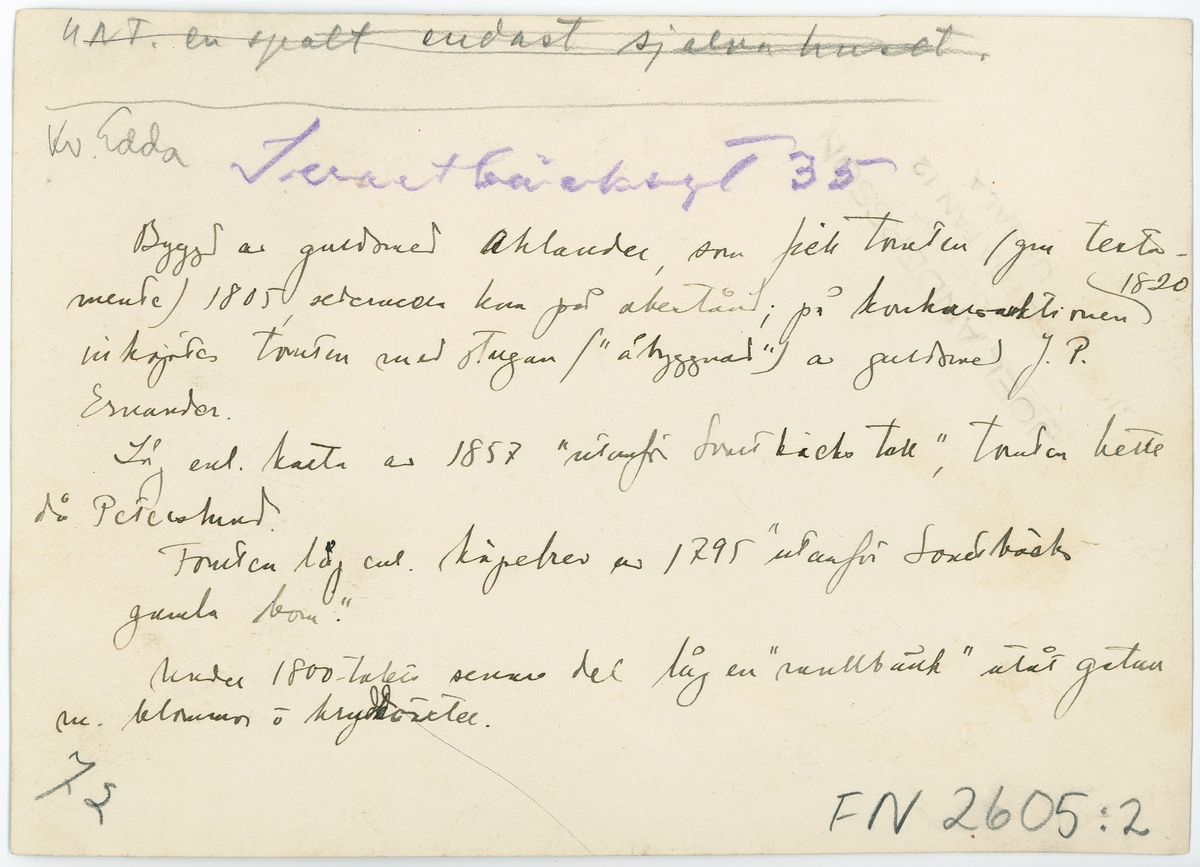 UNT. en spalt endast själva huset.
Kv. Edda
Svartbäcksgt 35
Byggd av guldsmed Ahlander, som fick tomten (gm testa-
mente) 1805, sedermera kom på obestånd; på konkursauktionen 1820
inköptes tomten med stugan ("åbyggnad") av guldsmed J. P.
Ernander.
Låg enl. karta av 1857 "utanför Svartbäcks tull", tomten hette
då Peterslund.
Tomten låg enl. köpebrev av 1795 "utanför Svartbäcks
gamla bom".
Under 1800-talets senare del låg en "mullbänk" utåt gatan
m. blommor o kryddörter.
7/2
FN 2605:2